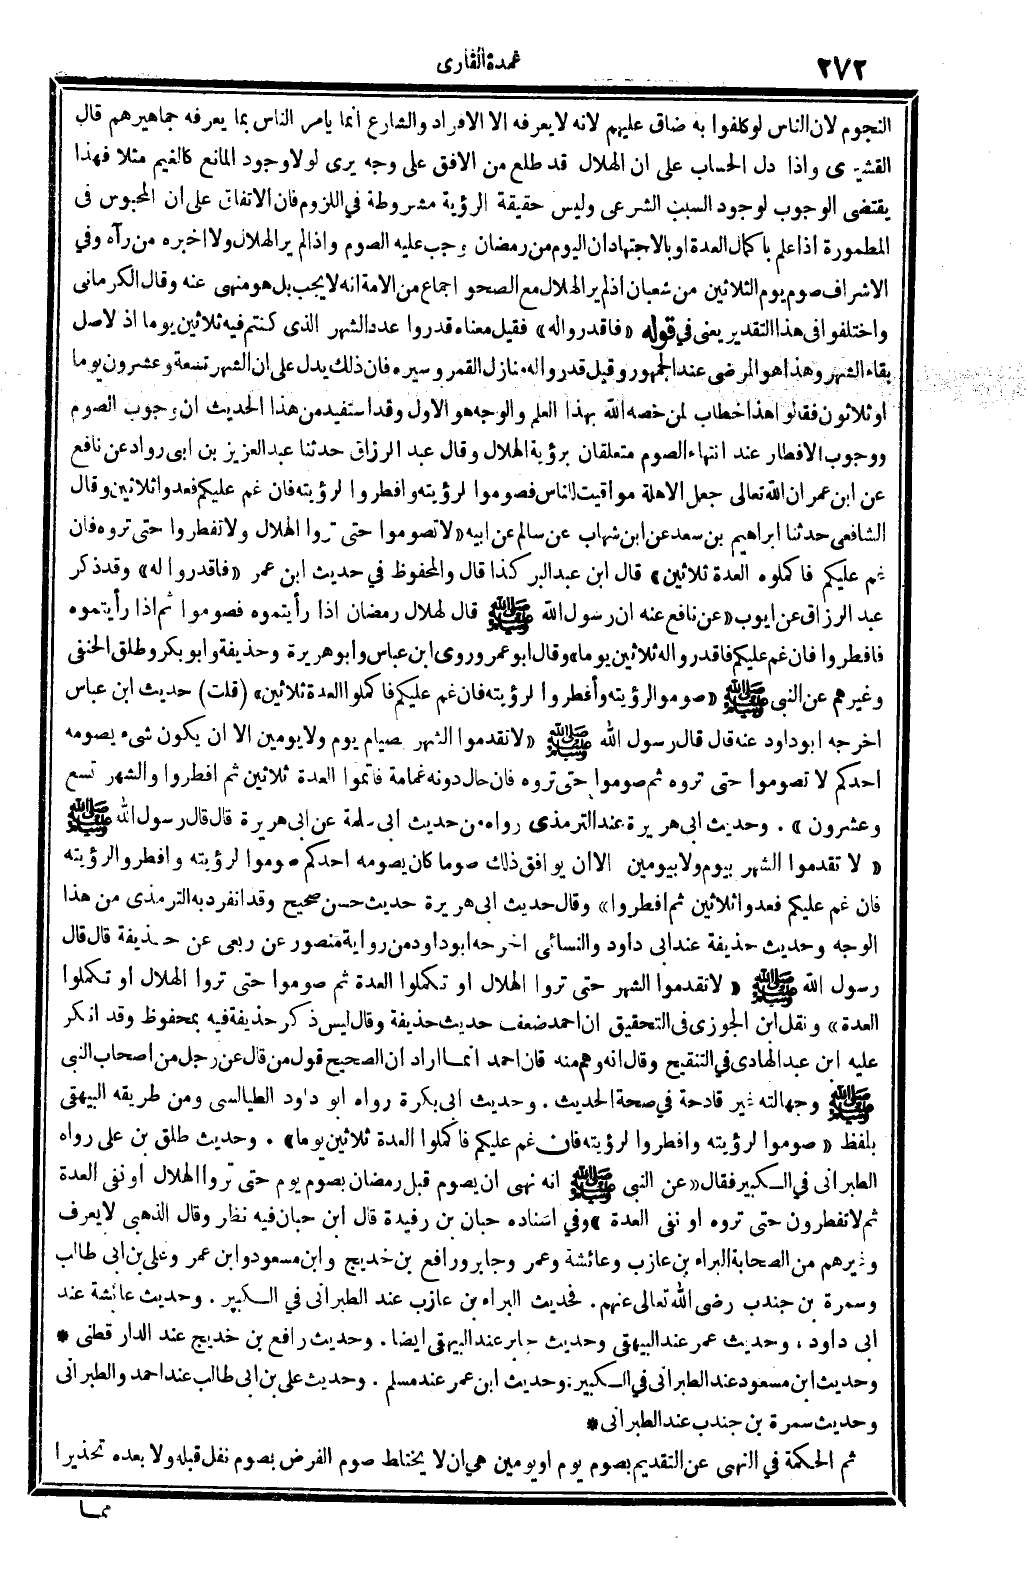 ٢٧٢
عمدة القارى
النجوم لان الناس لو كلفوا به ضاق عليهم لانه لا يعرفه الا الافراد والشارع انما يامر الناس بما يعرفه جماهيرهم قال
القشيرى واذا دل الحساب على ان الهلال قد طلع من الافق على وجه يرى لولا وجود المانع كالغيم مثلا فهذا
يقتضى الوجوب لوجود السبب الشرعى وليس حقيقة الرؤية مشروطة في اللزوم فان الاتفاق على ان المحبوس فى
المطمورة اذا علم باكمال العدة او بالاجتهاد ان اليوم من رمضان وجب عليه الصوم واذا لم ير الهلال ولا اخبره من رآه وفي
الاشراف صوم يوم الثلاثين من شعبان اذا لم ير الهلال مع الصحو اجماع من الامة انه لا يجب بل هو منهى عنه وقال الكرمانى
واختلفوا فى هذا التقدير يعنى في قوله «فاقدروا له» فقيل معناه قدروا عدد الشهر الذى كنتم فيه ثلاثين يوما اذ لاصل
بقاء الشهر وهذا هو المرضى عند الجمهور وقيل قدروا له منازل القمر وسيره فان ذلك يدل على ان الشهر تسعة وعشرون يوما
او ثلاثون فقالوا هذا خطاب لمن خصه الله بهذا العلم والوجه هو الاول وقد استفيد من هذا الحديث ان وجوب الصوم
ووجوب الافطار عند انتهاء الصوم متعلقان برؤية الهلال وقال عبد الرزاق حدثنا عبد العزيز بن ابى رواد عن نافع
عن ابن عمر ان الله تعالى جعل الاهلة مواقيت للناس فصوموا لرؤيته وافطروا لرؤيته فان غم عليكم فعدوا ثلاثين وقال
الشافعى حدثنا ابراهيم بن سعد عن ابن شهاب عن سالم عن ابيه «لا تصوموا حتى تروا الهلال ولا تفطروا حتى تروه فان
غم عليكم فاكملوه العدة ثلاثين» قال ابن عبد البر كذا قال والمحفوظ في حديث ابن عمر «فاقدروا له» وقد ذكر
عبد الرزاق عن ايوب «عن نافع عنه ان رسول الله ﷺ قال لهلال رمضان اذا رأيتموه فصوموا ثم اذا رأيتموه
فافطروا فان غم عليكم فاقدروا له ثلاثين يوما» وقال ابو عمر وروى ابن عباس وابو هريرة وحذيفة وابو بكر وطلق الحنفى
وغيرهم عن النبى ﷺ «صوموا لرؤيته وأفطروا لرؤيته فان غم عليكم فاكملوا العدة ثلاثين» (قلت) حديث ابن عباس
اخرجه ابو داود عنه قال قال رسول الله ﷺ «لا تقدموا الشهر بصيام يوم ولا يومين الا ان يكون شىء يصومه
احدكم لا تصوموا حتى تروه ثم صوموا حتى تروه فان حال دونه غمامة فاتموا العدة ثلاثين ثم افطروا والشهر تسع
وعشرون» . وحديث ابى هريرة عند الترمذى رواه من حديث ابى سلمة عن ابى هريرة قال قال رسول الله ﷺ
« لا تقدموا الشهر بيوم ولا بيومين الا ان يوافق ذلك صوما كان يصومه احدكم صوموا لرؤيته وافطروا لرؤيته
فان غم عليكم فعدوا ثلاثين ثم افطروا» وقال حديث ابى هريرة حديث حسن صحيح وقد انفرد به الترمذى من هذا
الوجه وحديث حذيفة عند ابى داود والنسائى اخرجه ابو داود من رواية منصور عن ربعى عن حذيفة قال قال
رسول الله ﷺ « لا تقدموا الشهر حتى تروا الهلال او تكملوا العدة ثم صوموا حتى تروا الهلال او تكملوا
العدة» ونقل ابن الجوزى فى التحقيق ان احمد ضعف حديث حذيفة وقال ليس ذكر حذيفة فيه بمحفوظ وقد انكر
عليه ابن عبد الهادى في التنقيح وقال انه وهم منه فان احمد انما اراد ان الصحيح قول من قال عن رجل من اصحاب النبى
ﷺ وجهالته غير قادحة في صحة الحديث . وحديث ابى بكرة رواه ابو داود الطيالسى ومن طريقه البيهقى
بلفظ « صوموا لرؤيته وافطروا لرؤيته فان غم عليكم فاكملوا العدة ثلاثين يوما» . وحديث طلق بن على رواه
الطبرانى في الكبير فقال «عن النبى ﷺ انه نهى ان يصوم قبل رمضان بصوم يوم حتى تروا الهلال او نفى العدة
ثم لا تفطرون حتى تروه او نفى العدة » وفي اسناده حبان بن رفيدة قال ابن حبان فيه نظر وقال الذهبى لا يعرف
وغيرهم من الصحابة البراء بن عازب وعائشة وعمر وجابر ورافع بن خديج وابن مسعود وابن عمر وعلى بن ابى طالب
وسمرة بن جندب رضى الله تعالى عنهم . فحديث البراء بن عازب عند الطبرانى في الكبير . وحديث عائشة عند
ابى داود ، وحديث عمر عند البيهقى وحديث جابر عند البيهقى ايضا . وحديث رافع بن خديج عند الدار قطنى *
وحديث ابن مسعود عند الطبرانى في الكبير : وحديث ابن عمر عند مسلم . وحديث على بن ابى طالب عند احمد والطبرانى
وحديث سمرة بن جندب عند الطبرانى *
ثم الحكمة في النهى عن التقديم بصوم يوم او يومين هي ان لا يختلط صوم الفرض بصوم نفل قبله ولا بعده تحذيرا
مما